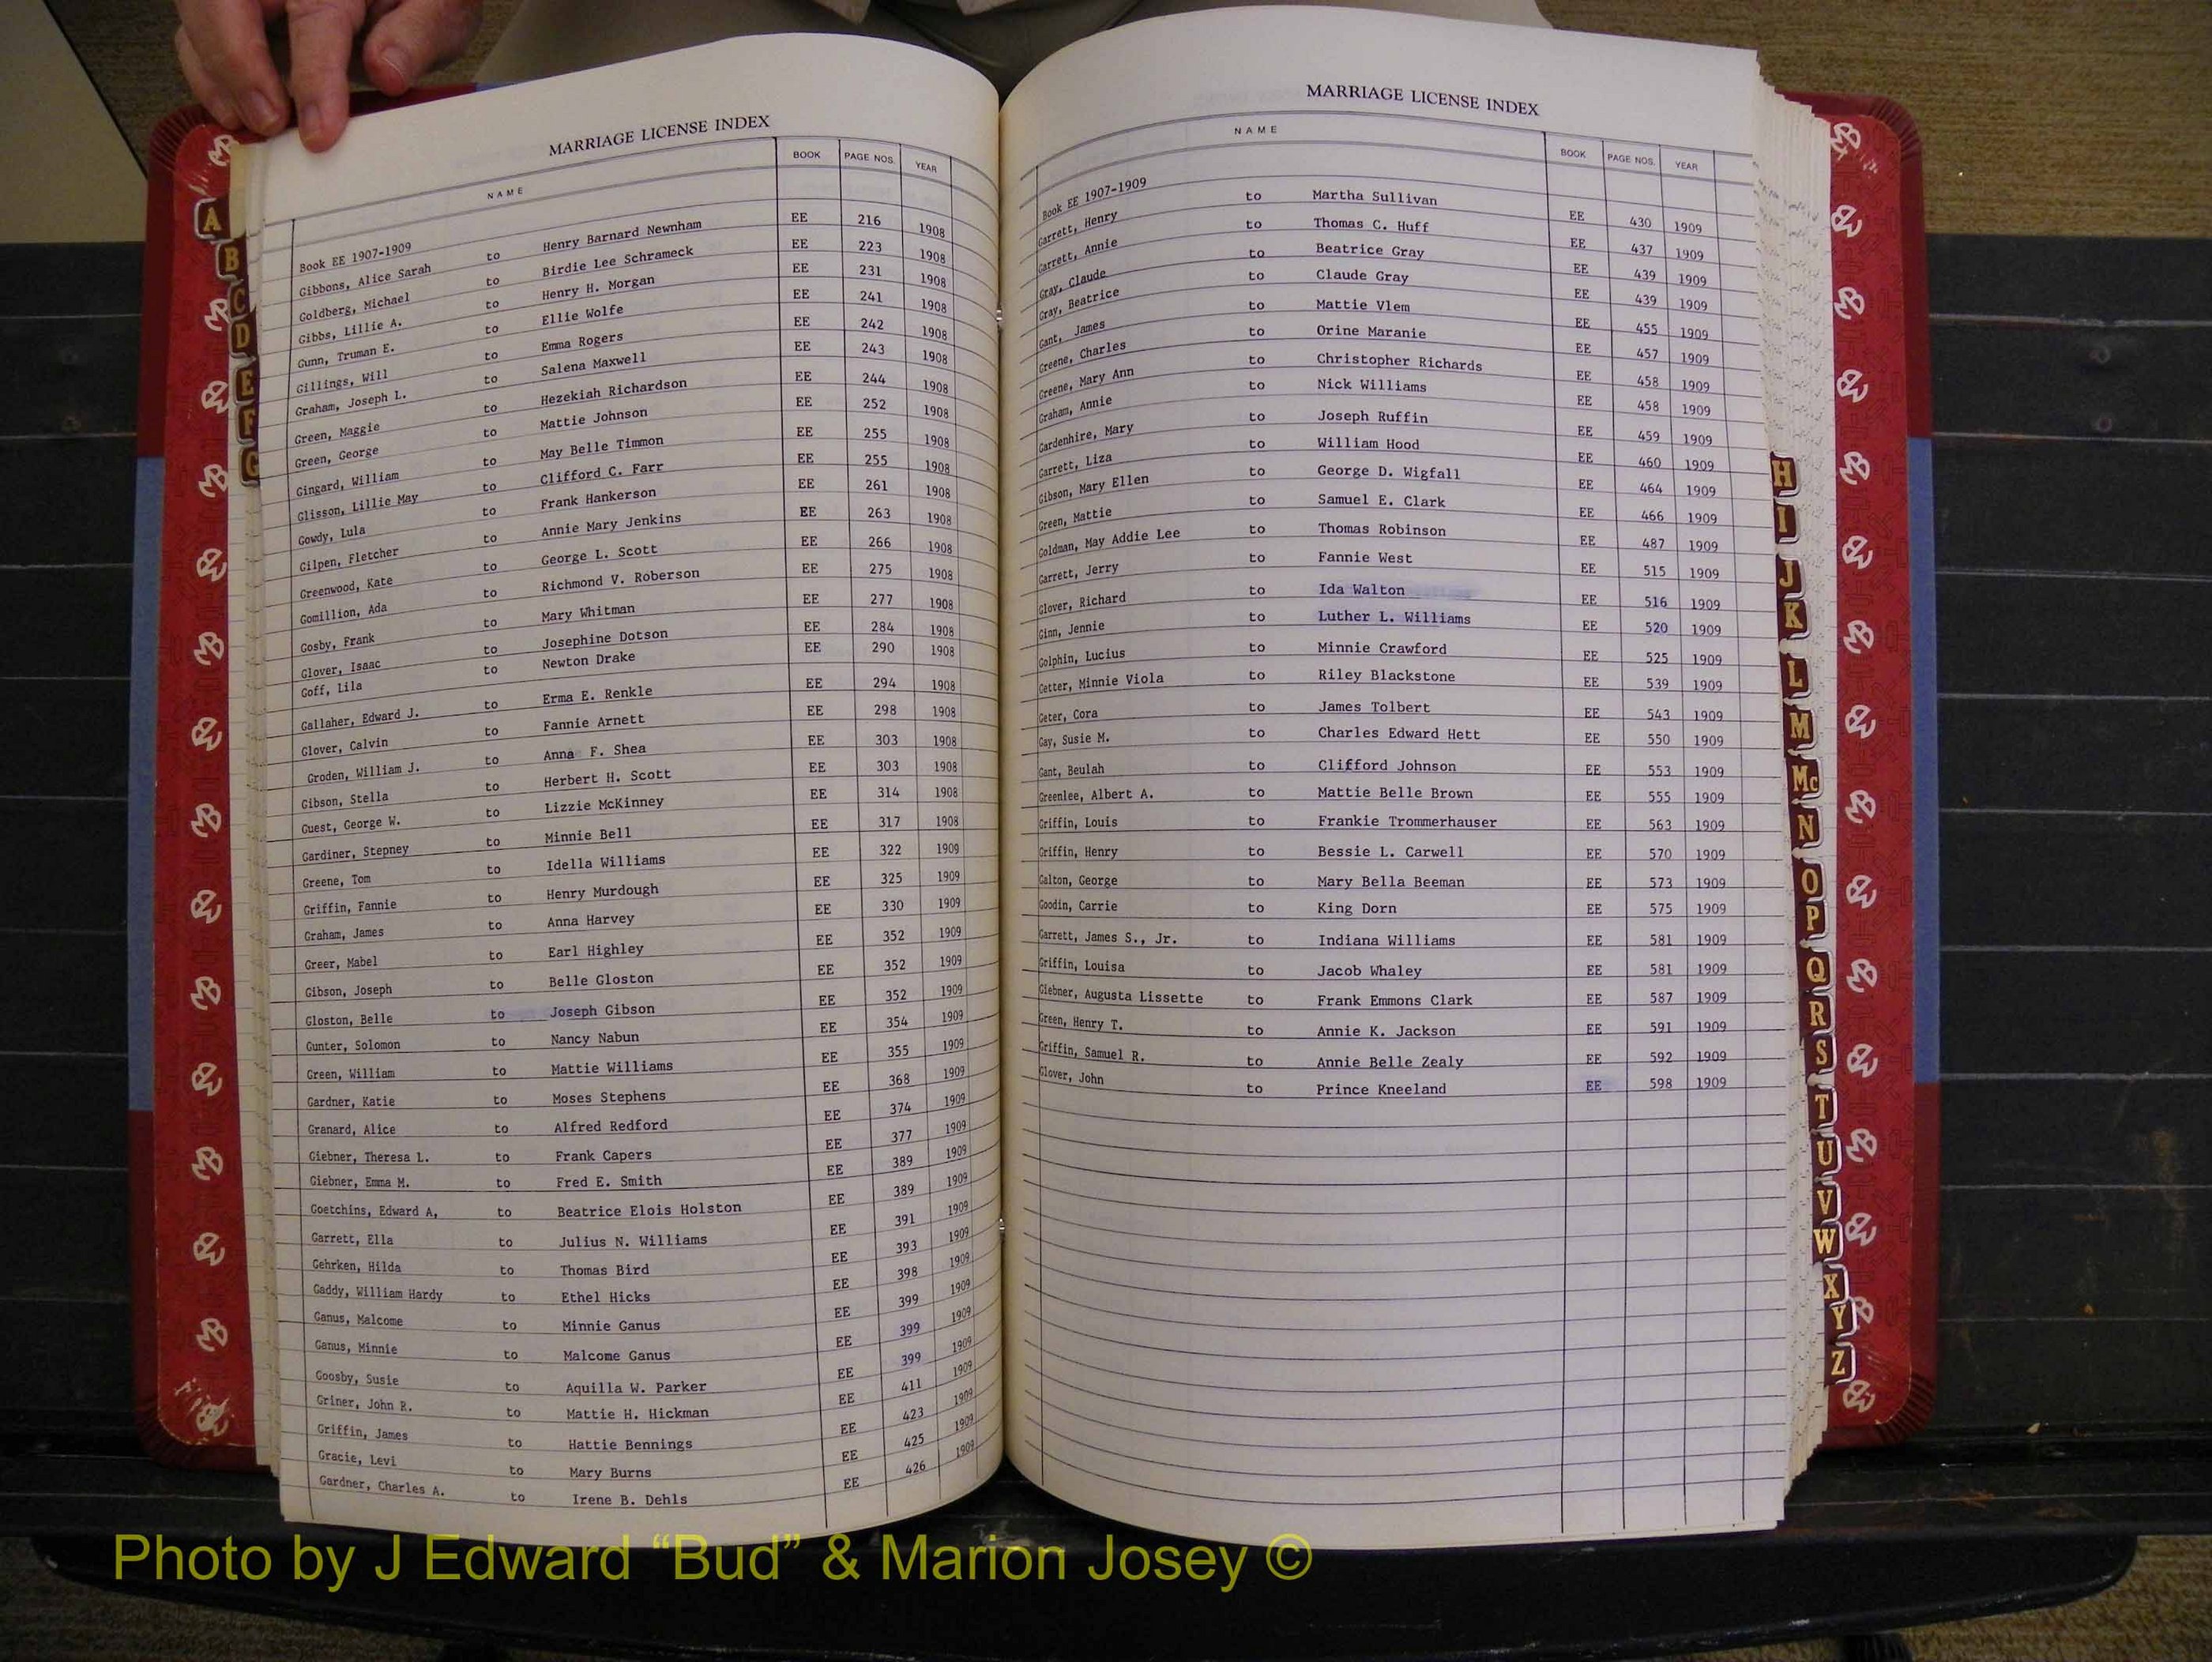 MARRIAGE LICENSE INDEX
NAME BOOK PAGE NOS. YEAR
Book EE 1907-1909
Gibbons, Alice Sarah to Henry Barnard Newnham EE 216 1908
Goldberg, Michael to Birdie Lee Schrameck EE 223 1908
Gibbs, Lillie A. to Henry H. Morgan EE 231 1908
Gunn, Truman E. to Ellie Wolfe EE 241 1908
Gillings, Will to Emma Rogers EE 242 1908
Graham, Joseph L. to Salena Maxwell EE 243 1908
Green, Maggie to Hezekiah Richardson EE 244 1908
Green, George to Mattie Johnson EE 252 1908
Gingard, William to May Belle Timmon EE 255 1908
Glisson, Lillie May to Clifford C. Farr EE 255 1908
Gowdy, Lula to Frank Hankerson EE 261 1908
Gilpen, Fletcher to Annie Mary Jenkins EE 263 1908
Greenwood, Kate to George L. Scott EE 266 1908
Gomillion, Ada to Richmond V. Roberson EE 275 1908
Gosby, Frank to Mary Whitman EE 277 1908
Glover, Isaac to Josephine Dotson EE 284 1908
Goff, Lila to Newton Drake EE 290 1908
Gallaher, Edward J. to Erma E. Renkle EE 294 1908
Glover, Calvin to Fannie Arnett EE 298 1908
Groden, William J. to Anna F. Shea EE 303 1908
Gibson, Stella to Herbert H. Scott EE 303 1908
Guest, George W. to Lizzie McKinney EE 314 1908
Gardiner, Stepney to Minnie Bell EE 317 1908
Greene, Tom to Idella Williams EE 322 1909
Griffin, Fannie to Henry Murdough EE 325 1909
Graham, James to Anna Harvey EE 330 1909
Greer, Mabel to Earl Highley EE 352 1909
Gibson, Joseph to Belle Gloston EE 352 1909
Gloston, Belle to Joseph Gibson EE 352 1909
Gunter, Solomon to Nancy Nabun EE 354 1909
Green, William to Mattie Williams EE 355 1909
Gardner, Katie to Moses Stephens EE 368 1909
Granard, Alice to Alfred Redford EE 374 1909
Giebner, Theresa L. to Frank Capers EE 377 1909
Giebner, Emma M. to Fred E. Smith EE 389 1909
Goetchins, Edward A, to Beatrice Elois Holston EE 389 1909
Garrett, Ella to Julius N. Williams EE 391 1909
Gehrken, Hilda to Thomas Bird EE 393 1909
Gaddy, William Hardy to Ethel Hicks EE 398 1909
Ganus, Malcome to Minnie Ganus EE 399 1909
Ganus, Minnie to Malcome Ganus EE 399 1909
Goosby, Susie to Aquilla W. Parker EE 399 1909
Griner, John R. to Mattie H. Hickman EE 411 1909
Griffin, James to Hattie Bennings EE 423 1909
Gracie, Levi to Mary Burns EE 425 1909
Gardner, Charles A. to Irene B. Dehls EE 426 1909
MARRIAGE LICENSE INDEX
NAME BOOK PAGE NOS. YEAR
Book EE 1907-1909
Garrett, Henry to Martha Sullivan EE 430 1909
Garrett, Annie to Thomas C. Huff EE 437 1909
Gray, Claude to Beatrice Gray EE 439 1909
Gray, Beatrice to Claude Gray EE 439 1909
Gant, James to Mattie Vlem EE 455 1909
Greene, Charles to Orine Maranie EE 457 1909
Greene, Mary Ann to Christopher Richards EE 458 1909
Graham, Annie to Nick Williams EE 458 1909
Gardenhire, Mary to Joseph Ruffin EE 459 1909
Garrett, Liza to William Hood EE 460 1909
Gibson, Mary Ellen to George D. Wigfall EE 464 1909
Green, Mattie to Samuel E. Clark EE 466 1909
Goldman, May Addie Lee to Thomas Robinson EE 487 1909
Garrett, Jerry to Fannie West EE 515 1909
Glover, Richard to Ida Walton EE 516 1909
Ginn, Jennie to Luther L. Williams EE 520 1909
Golphin, Lucius to Minnie Crawford EE 525 1909
Getter, Minnie Viola to Riley Blackstone EE 539 1909
Geter, Cora to James Tolbert EE 543 1909
Gay, Susie M. to Charles Edward Hett EE 550 1909
Gant, Beulah to Clifford Johnson EE 553 1909
Greenlee, Albert A. to Mattie Belle Brown EE 555 1909
Griffin, Louis to Frankie Trommerhauser EE 563 1909
Griffin, Henry to Bessie L. Carwell EE 570 1909
Galton, George to Mary Bella Beeman EE 573 1909
Goodin, Carrie to King Dorn EE 575 1909
Garrett, James S., Jr. to Indiana Williams EE 581 1909
Griffin, Louisa to Jacob Whaley EE 581 1909
Giebner, Augusta Lissette to Frank Emmons Clark EE 587 1909
Green, Henry T. to Annie K. Jackson EE 591 1909
Griffin, Samuel R. to Annie Belle Zealy EE 592 1909
Glover, John to Prince Kneeland EE 598 1909
A
B
C
D
E
F
G
H
I
J
K
L
M
Mc
N
O
P
Q
R
S
T
U
V
W
X
Y
Z
Photo by J Edward “Bud” & Marion Josey ©